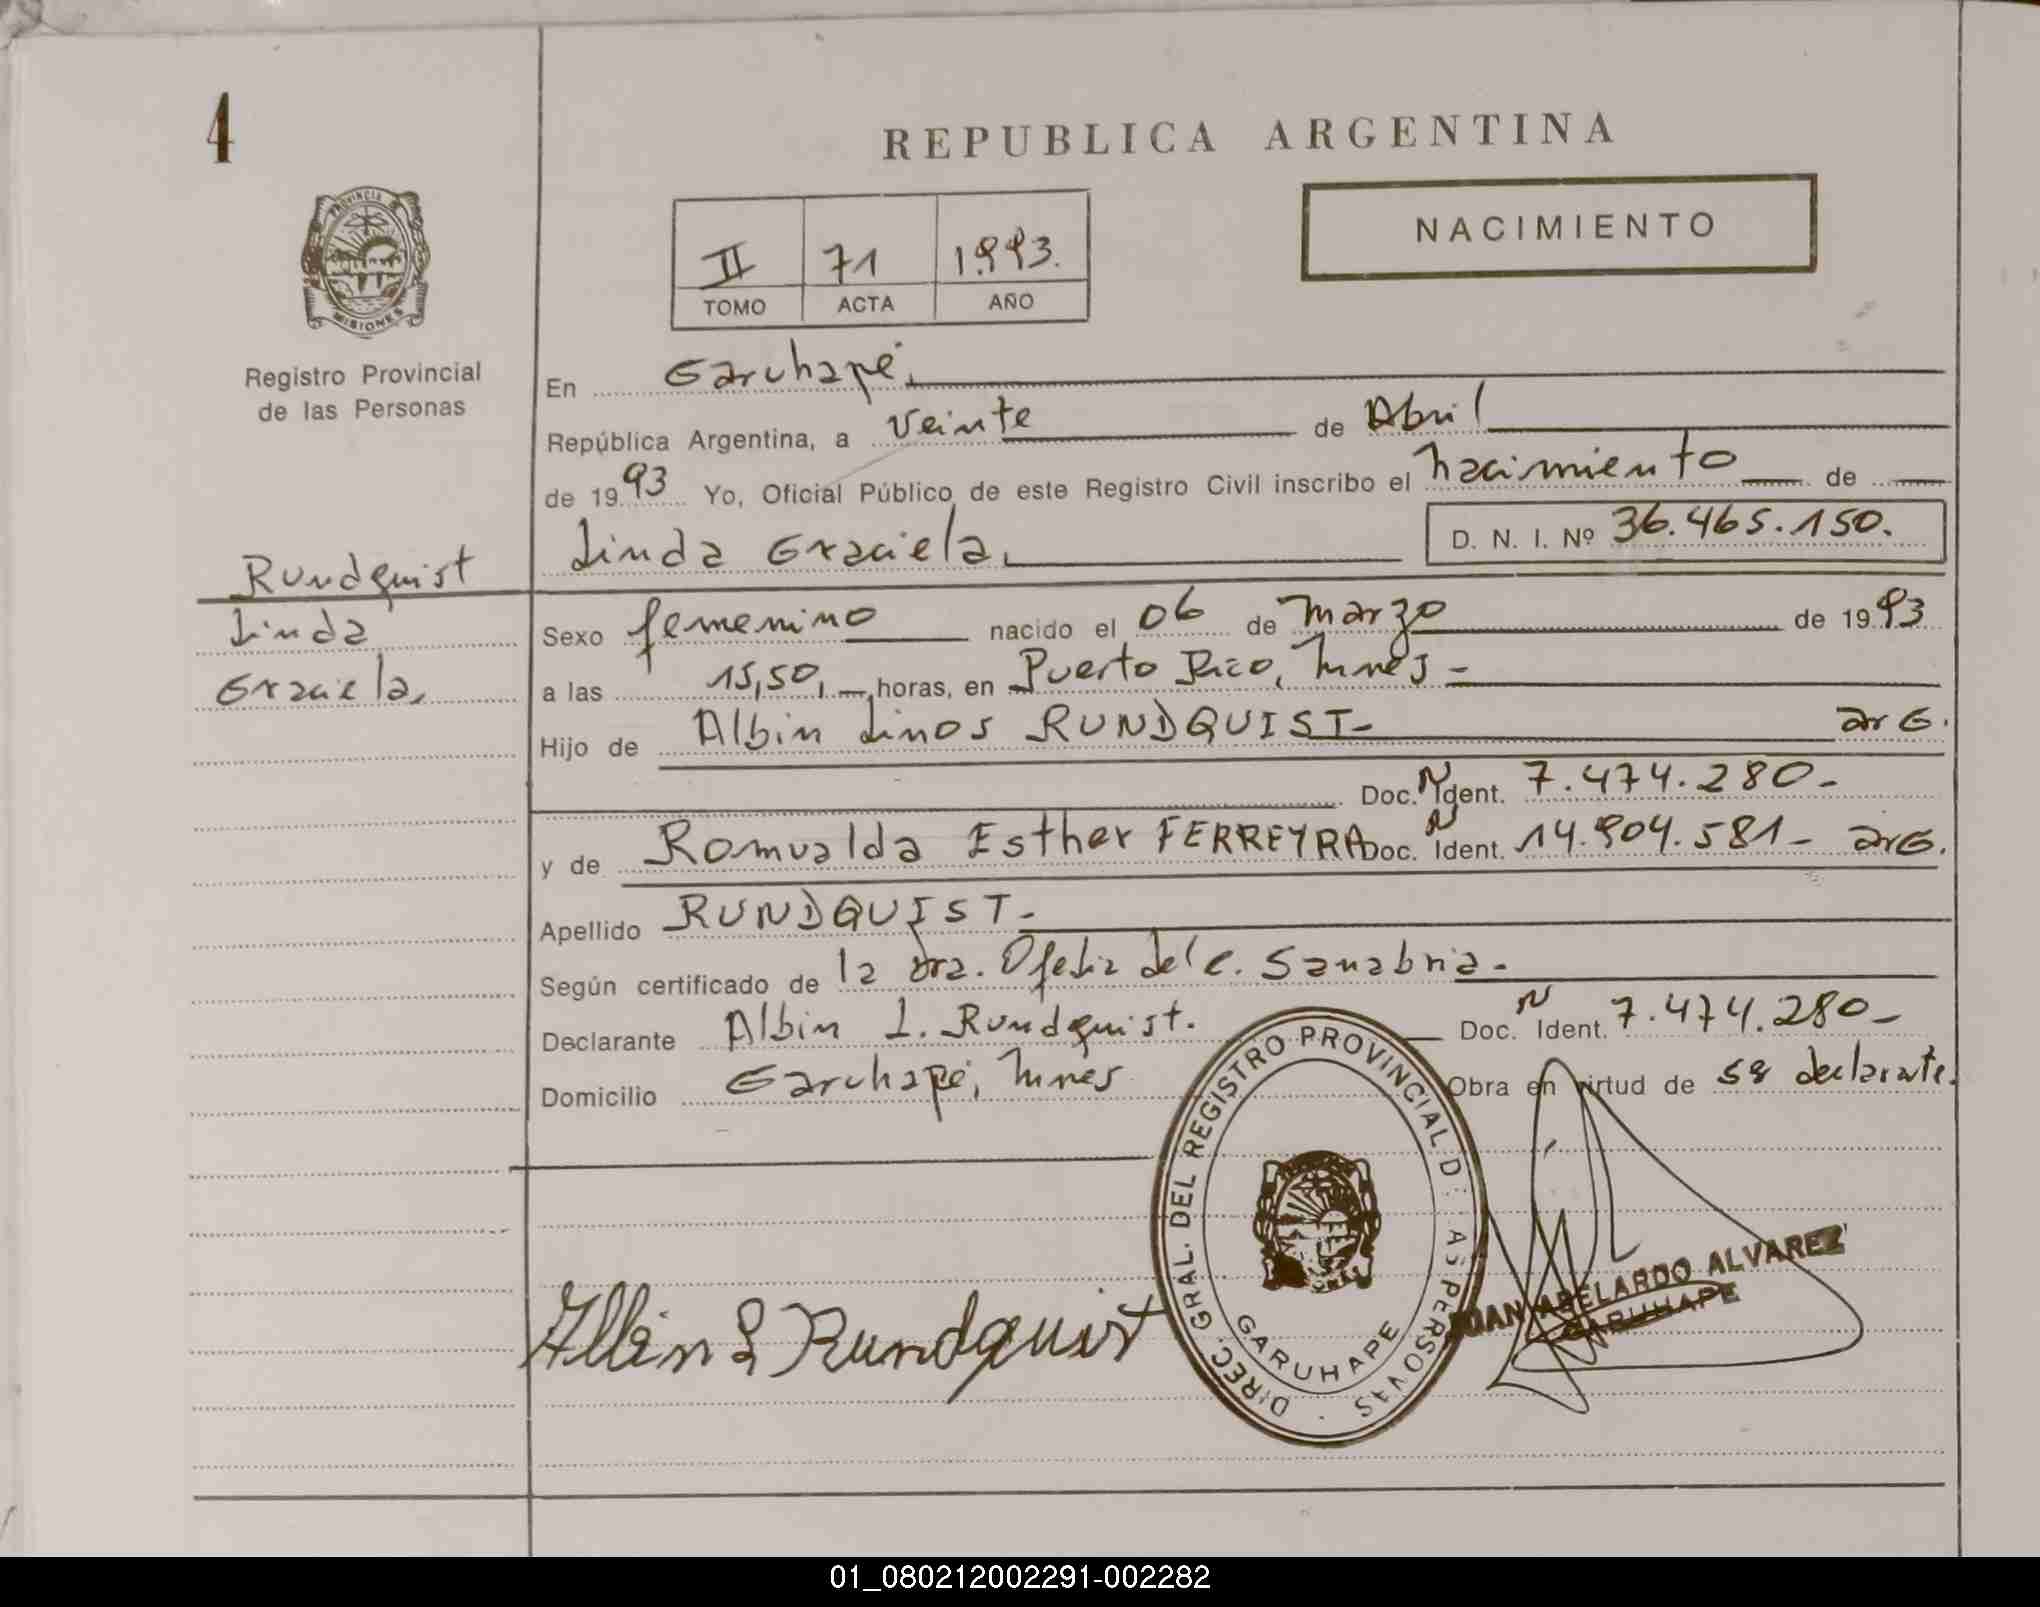 4
REPUBLICA ARGENTINA
NACIMIENTO
PROVINCIA DE
MISIONES
Registro Provincial
de las Personas
II 71 1993.
TOMO ACTA AÑO
En Garuhapé.
República Argentina, a Veinte de Abril
de 1993 Yo, Oficial Público de este Registro Civil inscribo el nacimiento de
Linda Graciela. D. N. I. Nº 36.465.150.
Rundquist
Linda
Graciela.
Sexo femenino nacido el 06 de Marzo de 1993
a las 15,50, horas, en Puerto Rico, Mnes -
Hijo de Albin Linos RUNDQUIST- arG.
Doc. N Ident. 7.474.280-
y de Romualda Esther FERREYRA Doc. N Ident. 14.904.581- arG.
Apellido RUNDQUIST.-
Según certificado de la dra. Ofelia del C. Sanabria.-
Declarante Albin L. Rundquist. Doc. N Ident. 7.474.280-
Domicilio Garuhapé, Mnes Obra en virtud de ser declarante.
DIREC. GRAL. DEL REGISTRO PROVINCIAL D AS PERSONAS
GARUHAPE
Albin L Rundquist
JUAN ABELARDO ALVAREZ
GARUHAPE
01_080212002291-002282